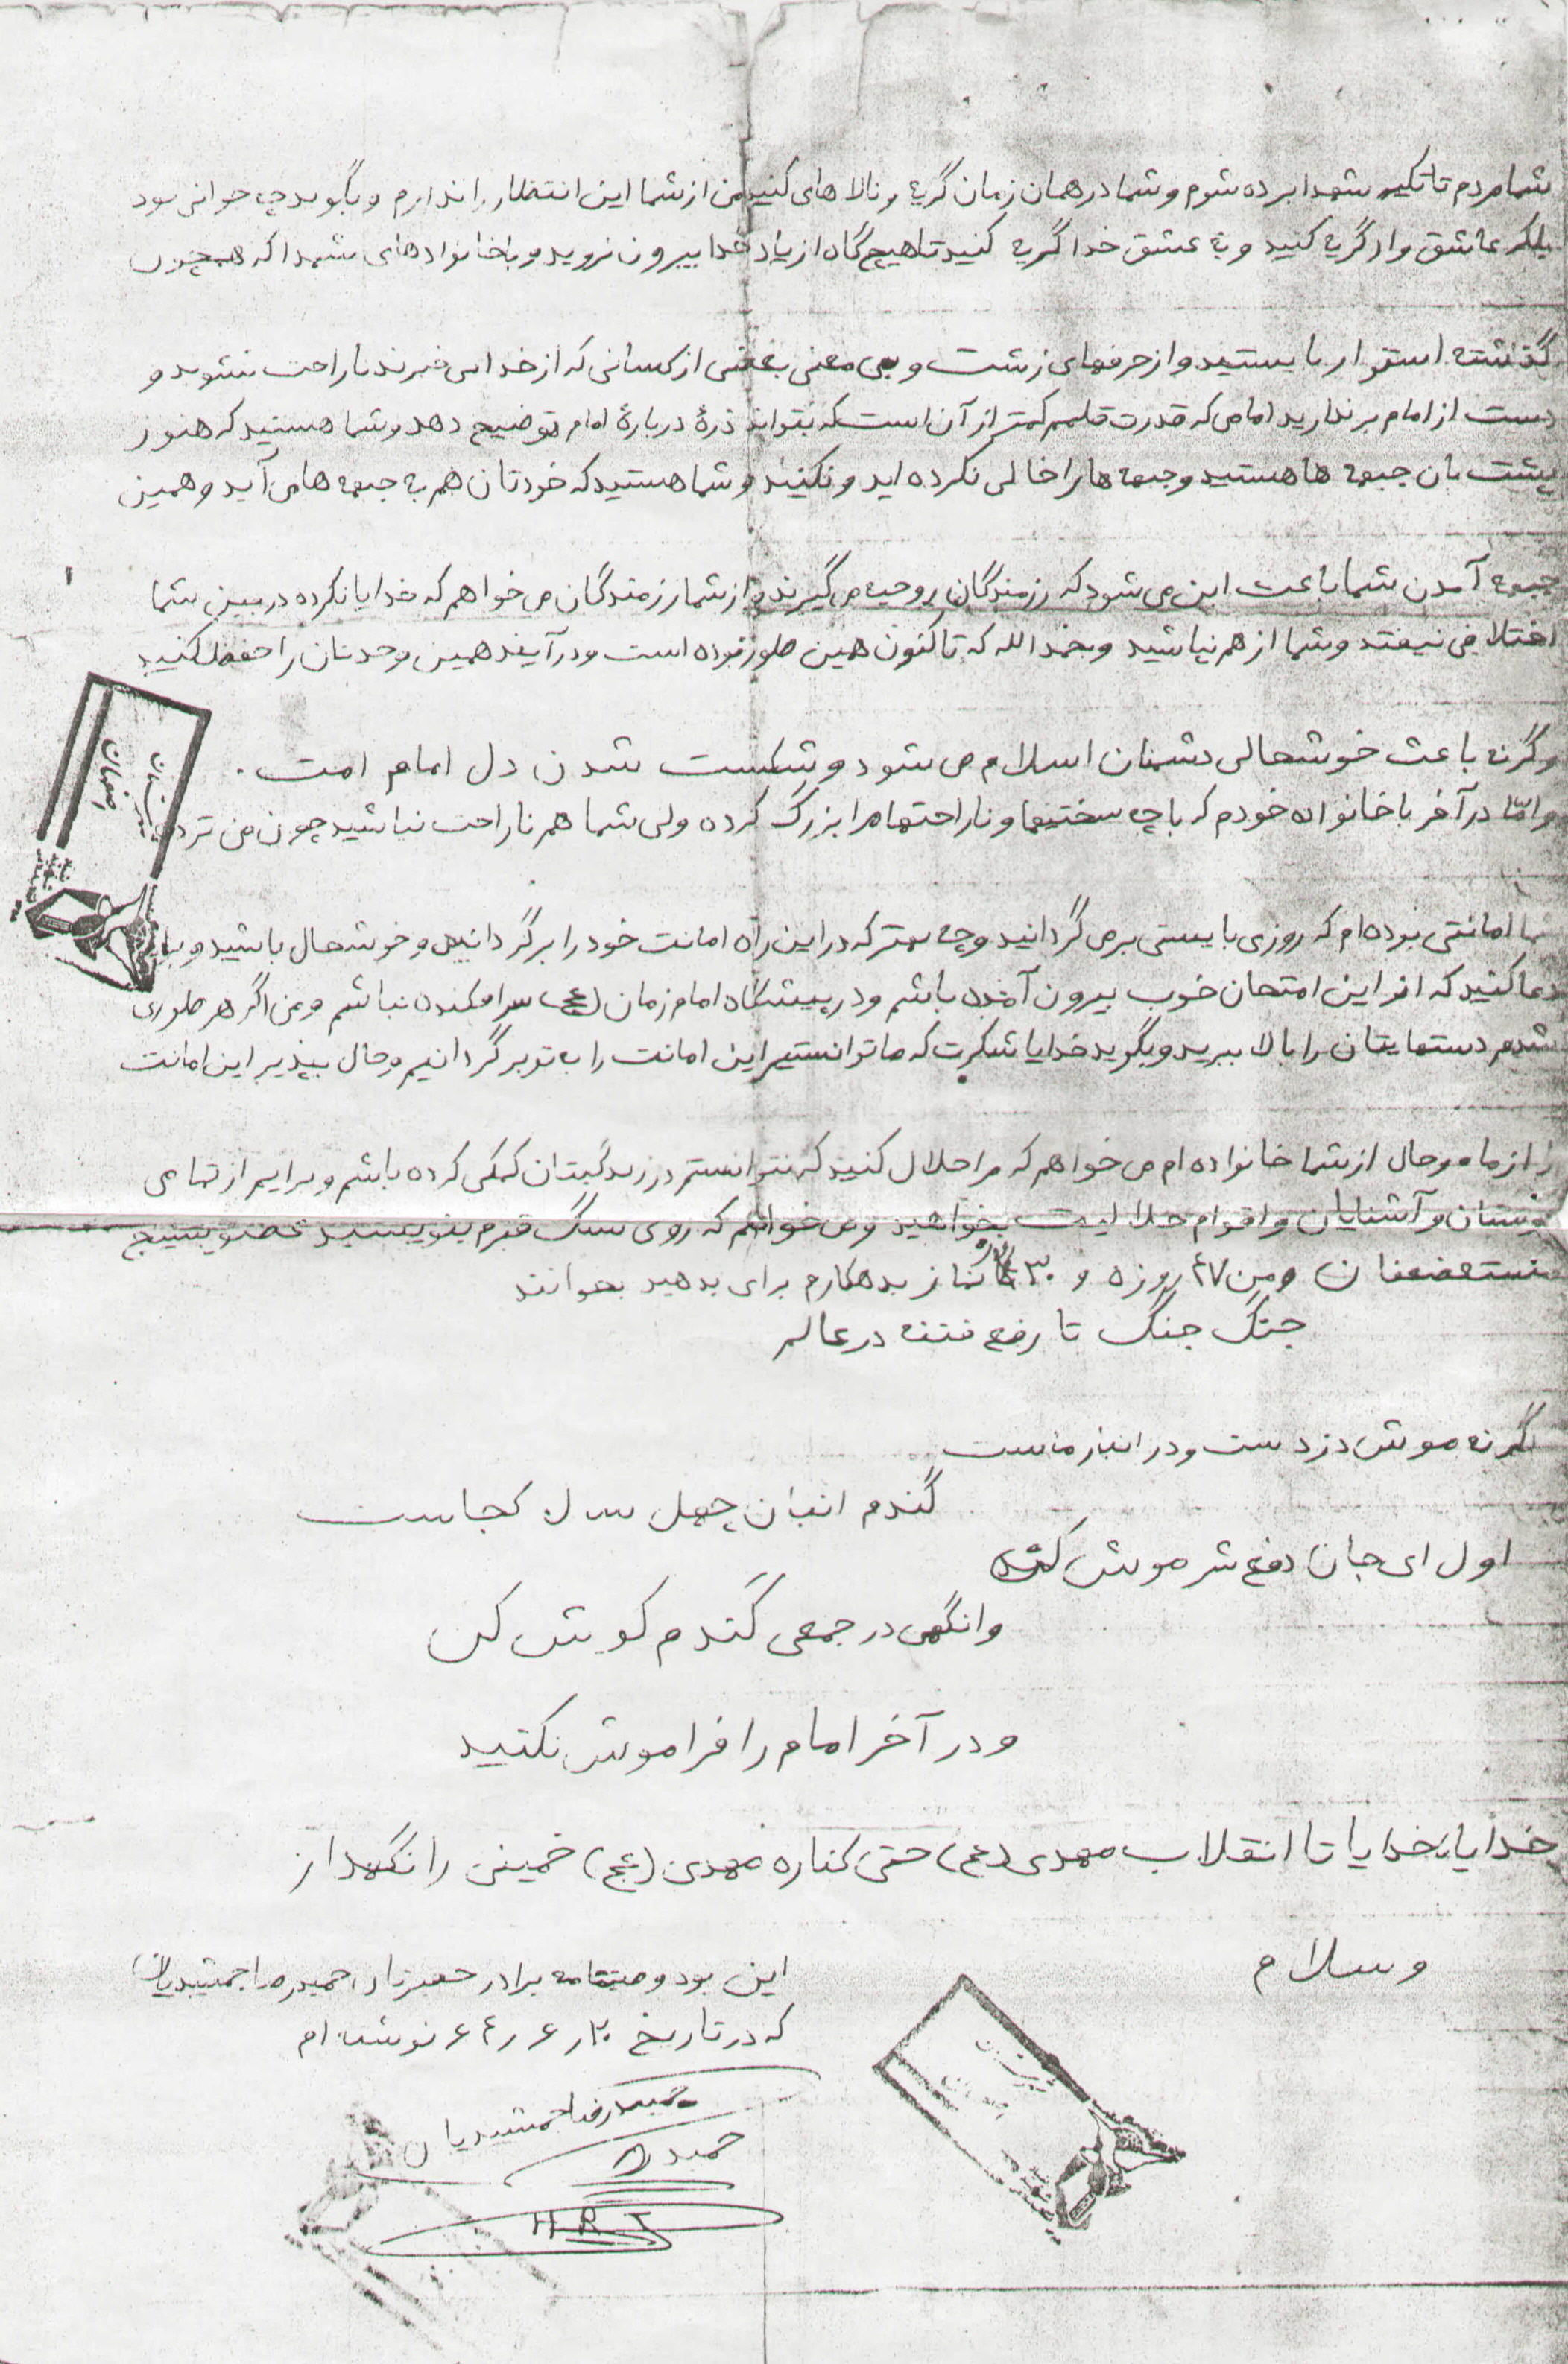 شما مردم تا تکیه شهدا برده شوم و شما در همان زمان گریه و نالا های کنید من از شما این انتظار را ندارم و بگوید چه جوانی بود
بلکه عاشق وار گریه کنید و به عشق خدا گریه کنید تا هیچ گاه از یاد خدا بیرون نروید و با خانوادهای شهدا که همچون
گذشته استوار بایستید و از حرفهای زشت و بی معنی بعضی از کسانی که از خدا بی خبرند ناراحت نشوید و
دست از امام برندارید امامی که قدرت قلمم کمتر از آن است که بتواند ذرهٔ دربارهٔ امام توضیح دهد و شما هستید که هنوز
پشت بان جبهه ها هستید و جبهه ها را خالی نکرده اید و نکنید و شما هستید که خودتان هم به جبهه ها می آید و همین
جبهه آمدن شما باعث این می شود که رزمندگان روحیه می گیرند و از شما رزمندگان می خواهم که خدایا نکرده در بین شما
اختلافی نیفتد و شما از هم نپاشید و بحمد الله که تا کنون همین طور نبوده است و در آیند همین وحدتتان را حفظ کنید
وگرنه باعث خوشحالی دشمنان اسلام می شود و شکست شدن دل امام امت .
و امّا در آخر با خانواده خودم که با چه سختیها و ناراحتها مرا بزرگ کرده ولی شما هم ناراحت نباشید چون من نزد
شما امانتی بوده ام که روزی بایستی بر می گرداندید و چه بهتر که در این راه امانت خود را برگردانید و خوشحال باشید و باید
دعا کنید که از این امتحان خوب بیرون آمده باشم و در پیشگاه امام زمان (عج) سرافکنده نباشم و من اگر هر طوری
شدم دستهایتان را بالا ببرید و بگوید خدایا شکرت که ما توانستیم این امانت را به تو برگردانیم و حال بپذیر این امانت
را از ما و حال از شما خانواده ام می خواهم که مرا حلال کنید که نتوانستم در زندگیتان کمکی کرده باشم و برایم از تمامی
دوستان و آشنایان و اقوام حلالیت بخواهید و می خواهم که روی سنگ قبرم بنویسید عضو بسیج
مستضعفان و من ۴۷ روزه و ۳۰ نماز بدهکارم برای بدهید بخوانند
جنگ جنگ تا رفع فتنه در عالم
گرنه موش دزدست و در انبار ماست
گندم انبان چهل سال کجاست
اول ای جان دفع شر موش کن
وانگهی در جمعی گندم کوش کن
و در آخر امام را فراموش نکنید
خدایا، خدایا تا انقلاب مهدی (عج) حتی کناره مهدی (عج) خمینی را نگهدار
وسلام
این بود وصیتنامه برادر حقیرتان حمیدرضا جمشیدیان
که در تاریخ ۲۰ر۶ر۶۴ نوشته ام
حمیدرضا جمشیدیان
حمید
H R J
اصفهان